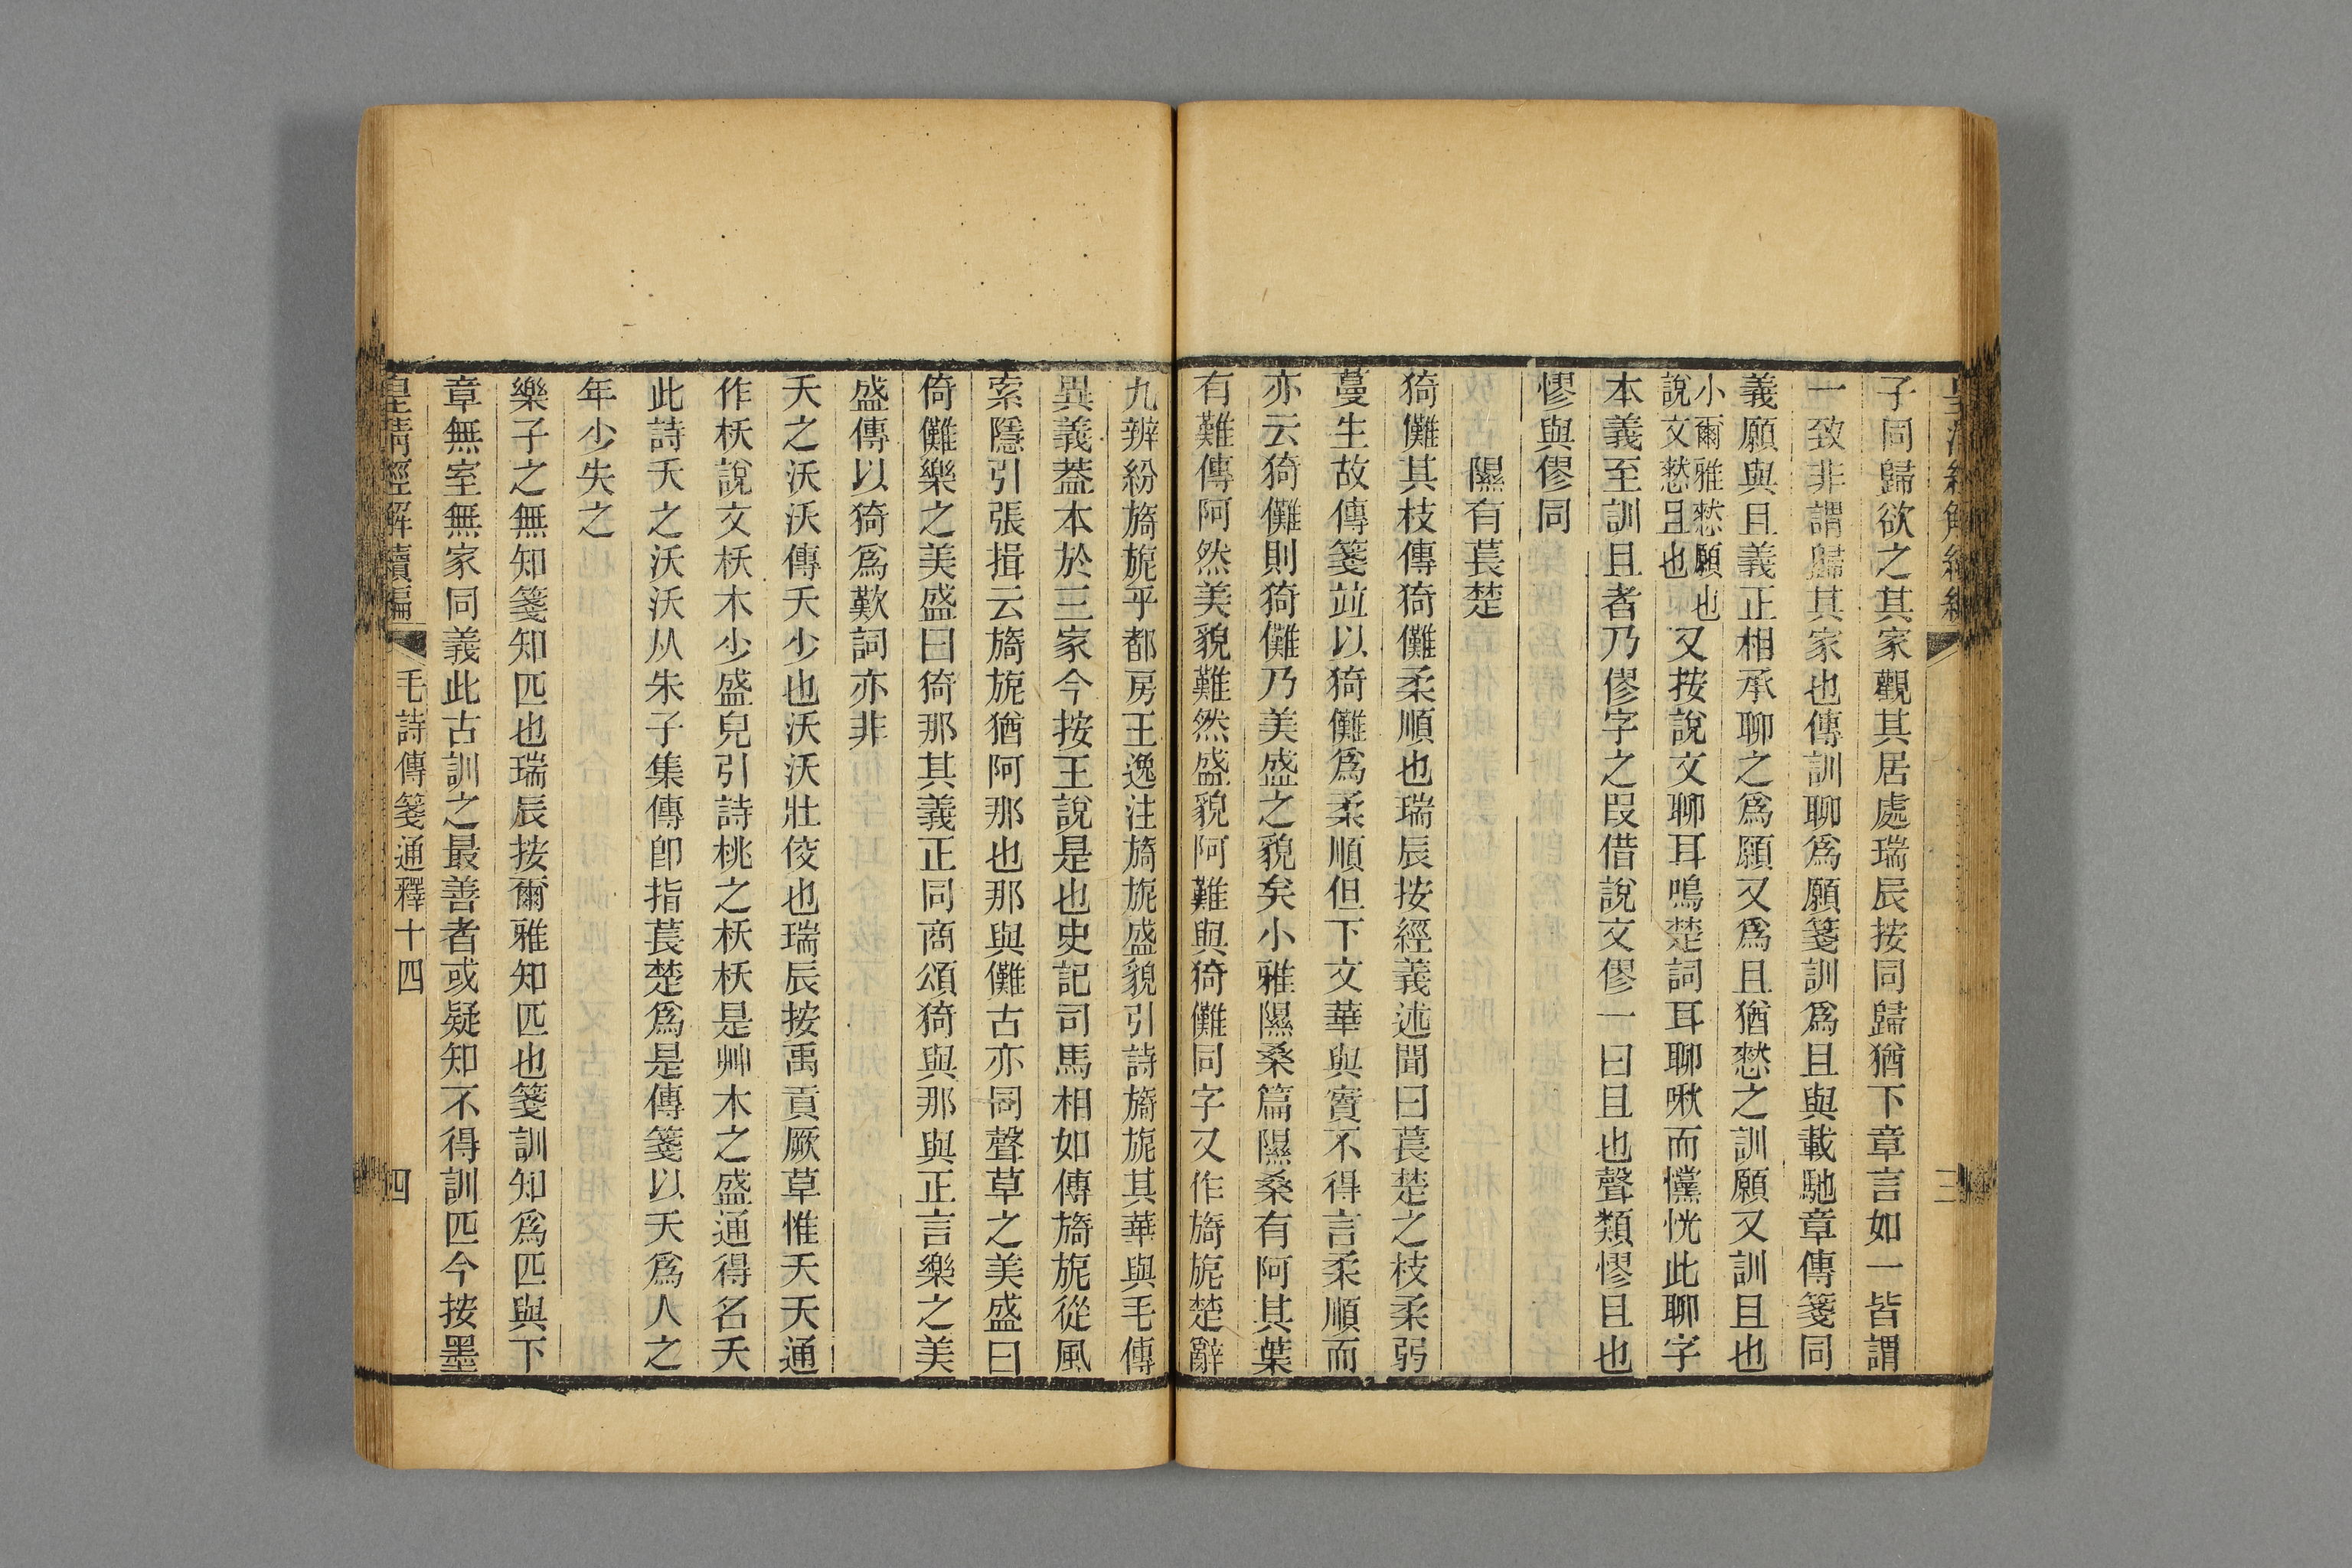 子同歸欲之其家觀其居處瑞辰按同歸猶下章言如一皆謂
一致非謂歸其家也傳訓聊爲願箋訓爲且與載馳章傳箋同
義願與且義正相承聊之爲願又爲且猶憖之訓願又訓且也
小爾雅憖願也
說文憖且也
又按說文聊耳鳴楚詞耳聊啾而戃恍此聊字
本義至訓且者乃僇字之叚借說文僇一曰且也聲類憀且也
憀與僇同
隰有萇楚
猗儺其枝傳猗儺柔順也瑞辰按經義述聞曰萇楚之枝柔弱
蔓生故傳箋竝以猗儺爲柔順但下文華與實不得言柔順而
亦云猗儺則猗儺乃美盛之貌矣小雅隰桑篇隰桑有阿其葉
有難傳阿然美貌難然盛貌阿難與猗儺同字又作旖旎楚辭
九辨紛旖旎乎都房王逸注旖旎盛貌引詩旖旎其華與毛傳
異義葢本於三家今按王說是也史記司馬相如傳旖旎從風
索隱引張揖云旖旎猶阿那也那與儺古亦同聲草之美盛曰
倚儺樂之美盛曰猗那其義正同商頌猗與那與正言樂之美
盛傳以猗爲歎詞亦非
夭之沃沃傳夭少也沃沃壯佼也瑞辰按禹貢厥草惟夭夭通
作枖說文枖木少盛皃引詩桃之枖枖是艸木之盛通得名夭
此詩夭之沃沃从朱子集傳卽指萇楚爲是傳箋以夭爲人之
年少失之
樂子之無知箋知匹也瑞辰按爾雅知匹也箋訓知爲匹與下
章無室無家同義此古訓之最善者或疑知不得訓匹今按墨
皇清經解續編
毛詩傳箋通釋十四
四